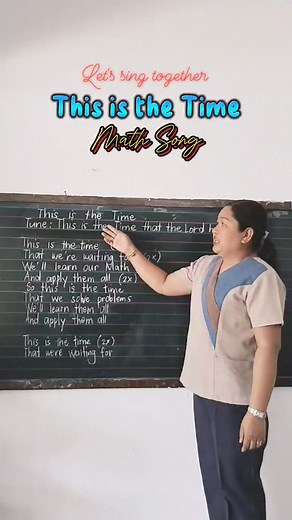 Let's sing together
This is the Time
Math Song
This is the Time
Tune: This is the Time that the Lord h
This is the time
That we're waiting for (2x)
We'll learn our Math
And apply them all (2x)
So this is the time
That we solve problems
We'll learn them all
And apply them all
This is the time (2x)
That we're waiting for